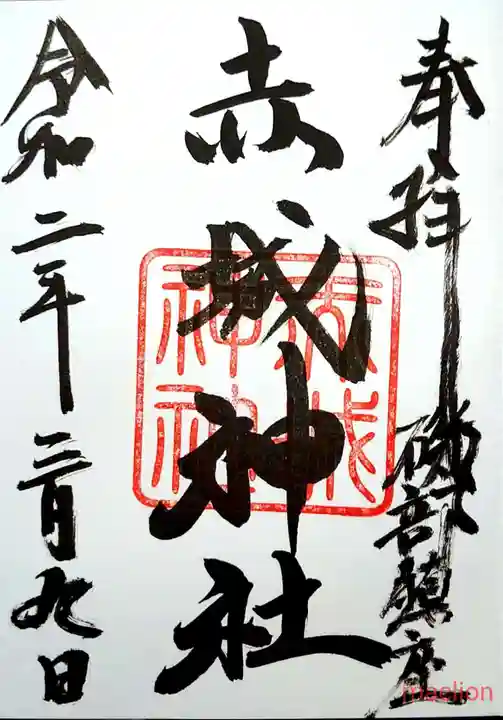 奉拝 磯部鎮座
赤城神社
赤城神社
令和二年三月九日
maelion